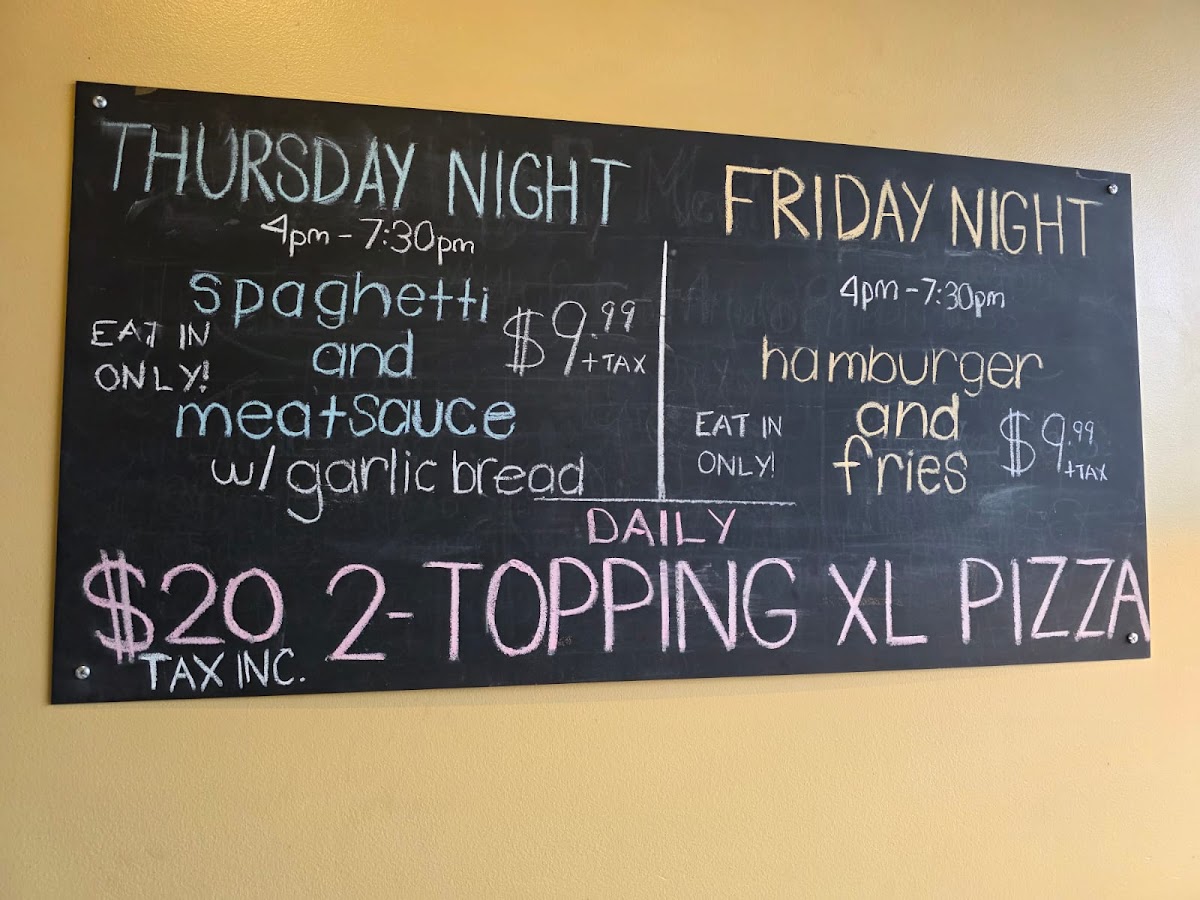 THURSDAY NIGHT
4pm - 7:30pm
spaghetti
and
meatsauce
w/ garlic bread
EAT IN
ONLY!
$9.99
+TAX
FRIDAY NIGHT
4pm - 7:30pm
hamburger
and
fries
EAT IN
ONLY!
$9.99
+TAX
DAILY
$20 2-TOPPING XL PIZZA
TAX INC.